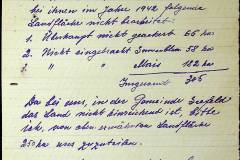 bei ihnen im Jahre 1942 folgende
Landfläche nicht bearbeitet:
1. Überhaupt nicht geackert 65 ha
2. Nicht eingebracht Sonnenblum 58 ha
" " Mais 182 ha
Insgesamt 305
Da bei uns, in der Gemeinde Seefeld
das Land nicht hinreichend ist, bitte
ich, von oben erwähnten Landfläche
250 ha uns zuzuteilen.